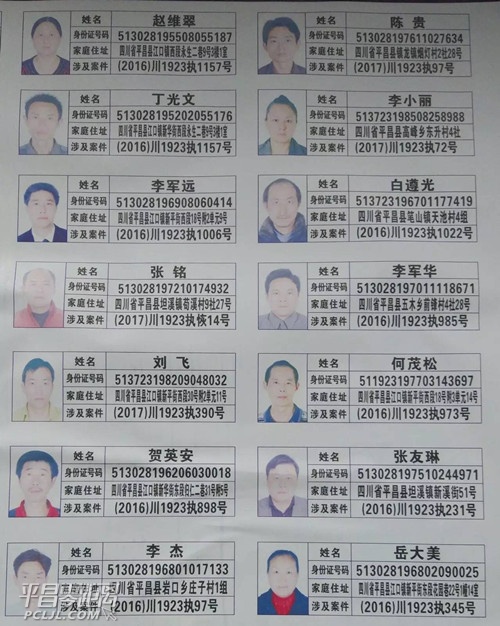 姓名 赵维翠
身份证号码 513028195508055187
家庭住址 四川省平昌县江口镇西段永生二巷9号3幢1室
涉及案件 (2016)川1923执1157号
姓名 陈贵
身份证号码 513028197611027634
家庭住址 四川省平昌县镇龙镇烟灯村2社28号
涉及案件 (2016)川1923执97号
姓名 丁光文
身份证号码 513028195202055176
家庭住址 四川省平昌县江口镇新华街西段永生二巷9号3幢1室
涉及案件 (2016)川1923执1157号
姓名 李小丽
身份证号码 513723198508258988
家庭住址 四川省平昌县高峰乡东升村4社
涉及案件 (2016)川1923执72号
姓名 李军远
身份证号码 513028196908060414
家庭住址 四川省平昌县江口镇新平街西段18号附2单元9号
涉及案件 (2016)川1923执1006号
姓名 白遵光
身份证号码 513723196701177419
家庭住址 四川省平昌县笔山镇天池村4组
涉及案件 (2016)川1923执1022号
姓名 张铭
身份证号码 513028197210174932
家庭住址 四川省平昌县坦溪镇荀溪村9社27号
涉及案件 (2017)川1923执恢14号
姓名 李军华
身份证号码 513028197011118671
家庭住址 四川省平昌县五木乡前锋村4社28号
涉及案件 (2016)川1923执985号
姓名 刘飞
身份证号码 513723198209048032
家庭住址 四川省平昌县江口镇新平街西段30号附2单元11号
涉及案件 (2017)川1923执390号
姓名 何茂松
身份证号码 511923197703143697
家庭住址 四川省平昌县江口镇新平街西段18号附3单元14号
涉及案件 (2016)川1923执973号
姓名 贺英安
身份证号码 513028196206030018
家庭住址 四川省平昌县江口镇新华街东段归仁二巷31号附5号
涉及案件 (2016)川1923执898号
姓名 张友琳
身份证号码 513028197510244971
家庭住址 四川省平昌县坦溪镇新溪街51号
涉及案件 (2016)川1923执231号
姓名 李杰
身份证号码 513028196801017133
家庭住址 四川省平昌县岩口乡庄子村1组
涉及案件 (2016)川1923执97号
姓名 岳大美
身份证号码 513028196802090025
家庭住址 四川省平昌县江口镇新平街东段花园巷22号1幢14室
涉及案件 (2016)川1923执345号
PCLJL.COM